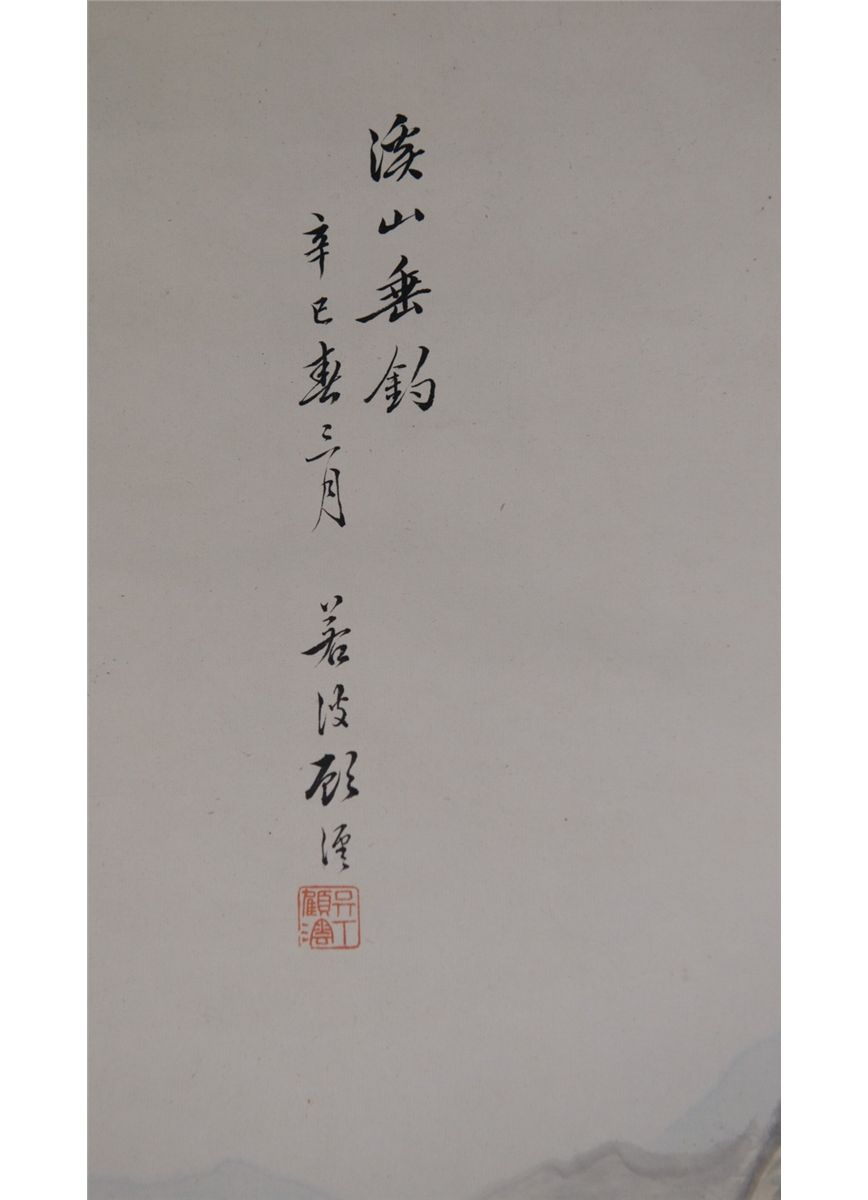 溪山垂釣
辛巳春三月 若波顧澐
吳下顧澐